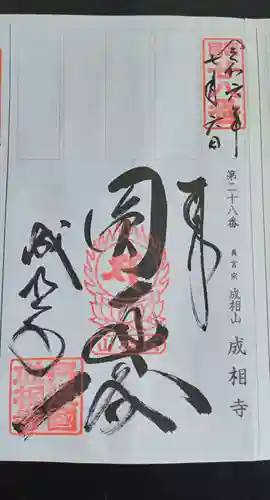 令和六年
七月六日
第二十八番
真言宗
成相山
成相寺
奉
圓通閣
成相寺